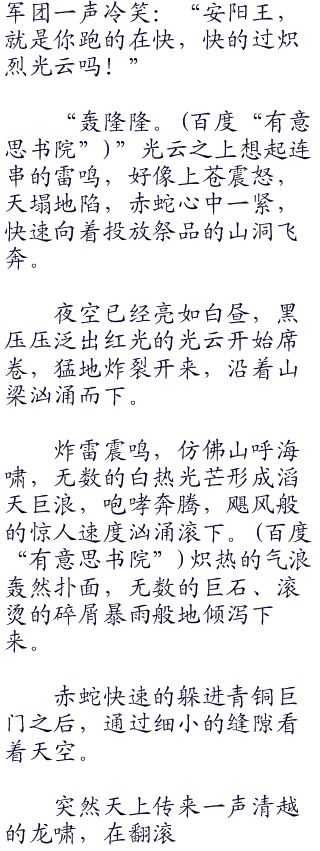 军团一声冷笑：“安阳王，
就是你跑的在快，快的过炽
烈光云吗！”
“轰隆隆。(百度“有意
思书院”)”光云之上想起连
串的雷鸣，好像上苍震怒，
天塌地陷，赤蛇心中一紧，
快速向着投放祭品的山洞飞
奔。
夜空已经亮如白昼，黑
压压泛出红光的光云开始席
卷，猛地炸裂开来，沿着山
梁汹涌而下。
炸雷震鸣，仿佛山呼海
啸，无数的白热光芒形成滔
天巨浪，咆哮奔腾，飓风般
的惊人速度汹涌滚下。(百度
“有意思书院”)炽热的气浪
轰然扑面，无数的巨石、滚
烫的碎屑暴雨般地倾泻下
来。
赤蛇快速的躲进青铜巨
门之后，通过细小的缝隙看
着天空。
突然天上传来一声清越
的龙啸，在翻滚